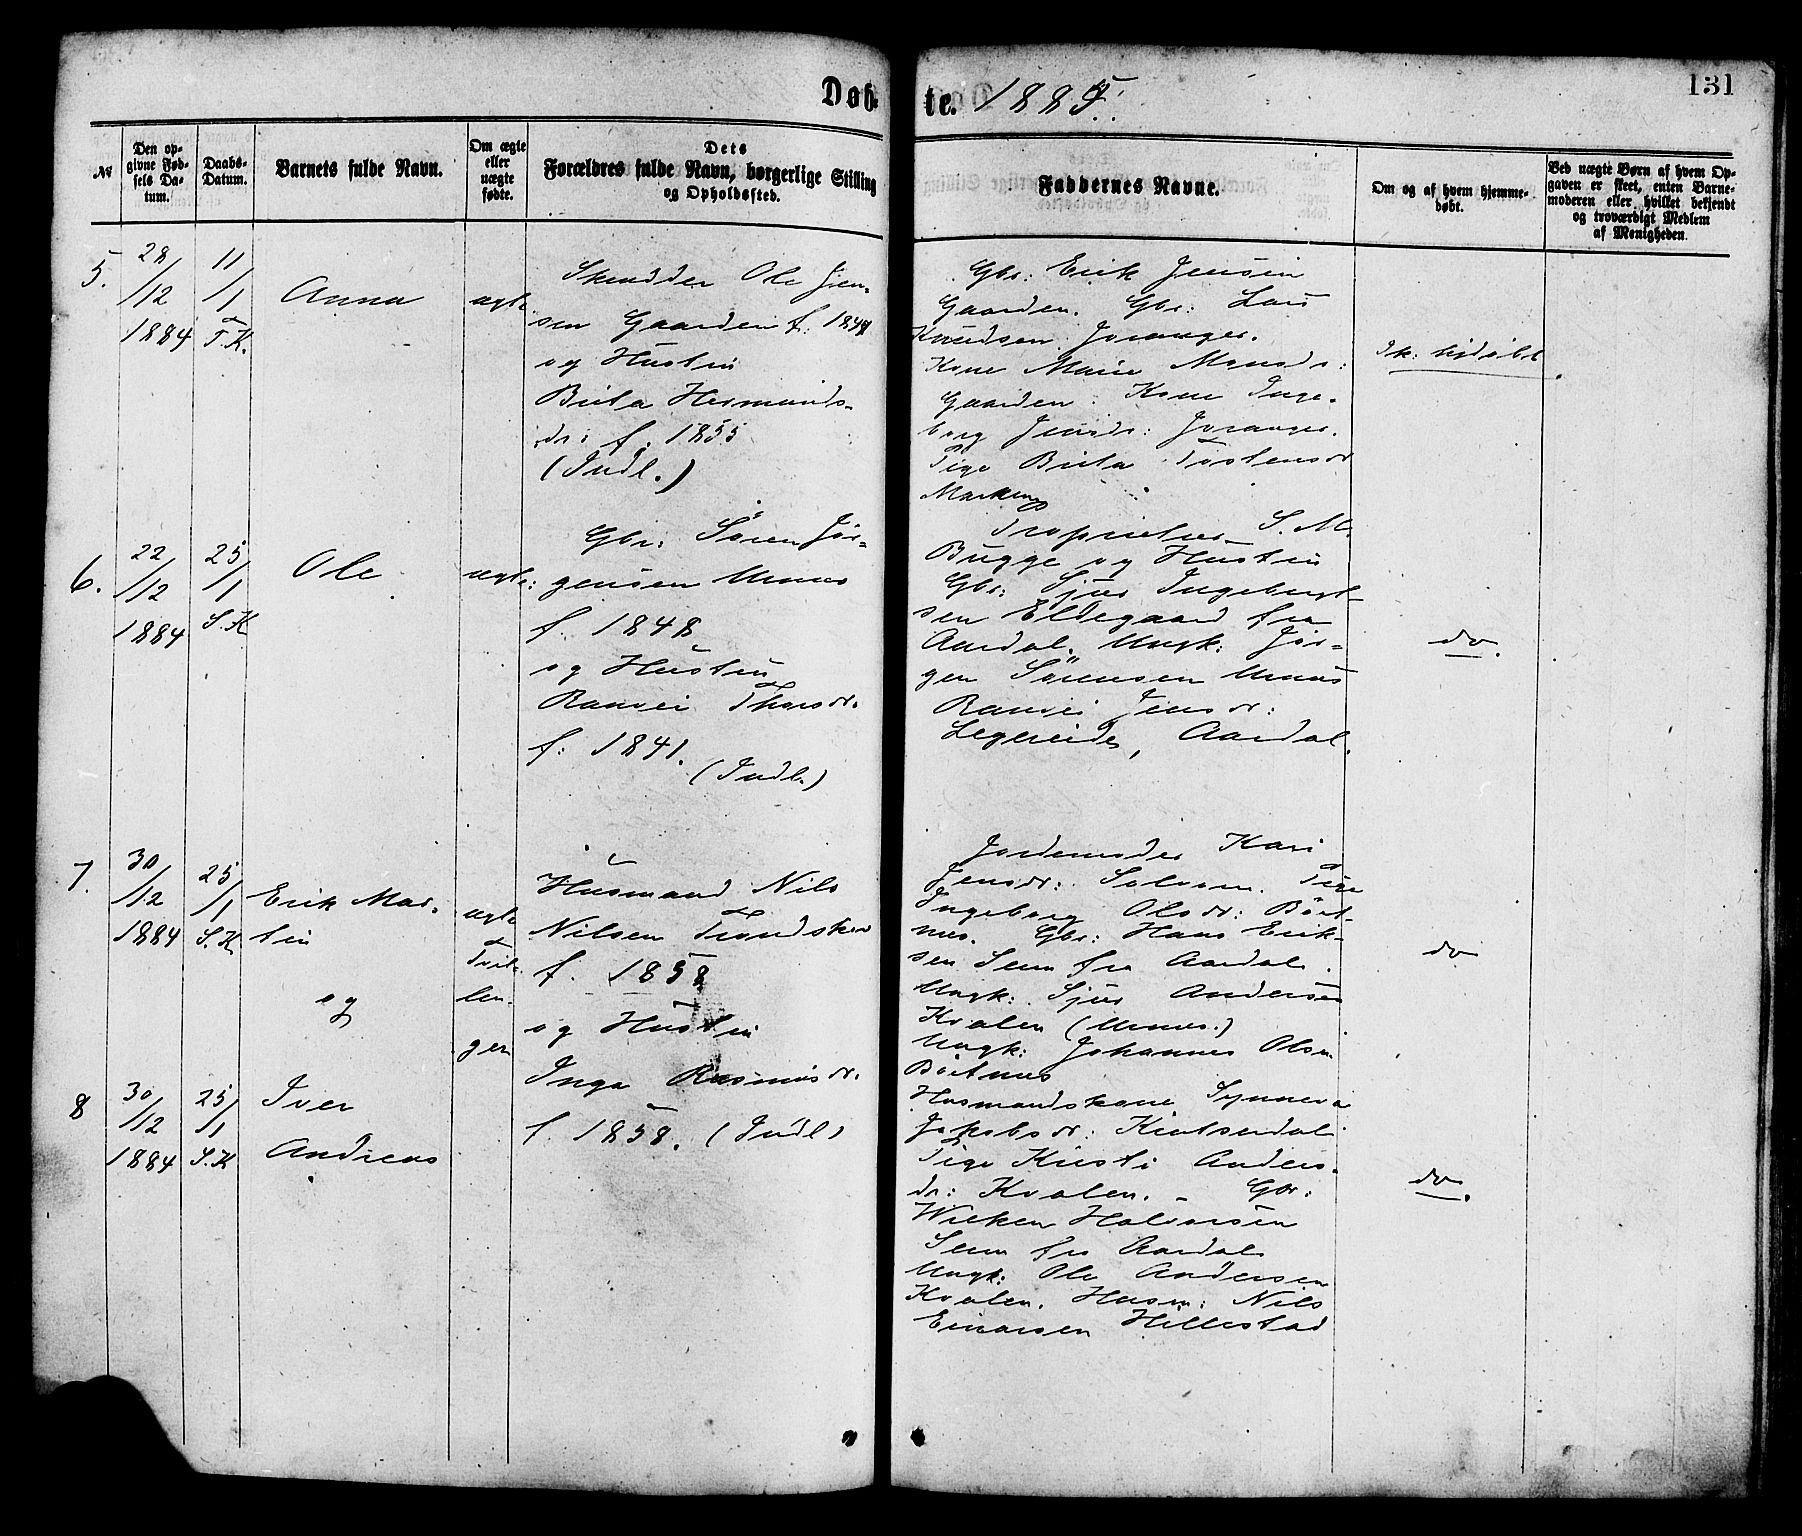 Døb-
te. 1885.
131
№
Den op-
givne Fød-
sels Da-
tum.
Daabs-
Datum.
Barnets fulde Navn.
Om ægte
eller
uægte
fødte.
Dets
Forældres fulde Navn, borgerlige Stilling
og Opholdssted.
Faddernes Navne.
Om og af hvem hjemme-
døbt.
Ved uægte Børn af hvem Op-
gaven er skeet, enten Barne-
moderen eller hvilket bekjendt
og troværdigt Medlem
af Menigheden.
5.
28/12
1884
11/1
J.K.
Anna
ægte
Skrædder Ole Jen-
sen Gaarden f. 1848
og Hustru
Brita Hermunds-
dr: f. 1855
(Indl.)
Gbr: Erik Jensen
Gaarden. Gbr: Lars
Knudsen Joranger.
Kone Marie Monsdr:
Gaarden. Kone Inge-
borg Jensdr: Joranger.
Pige Brita Tostensdr
Marken
Ik: hjdøbt.
6.
22/12
1884
25/1
S.K
Ole
ægte:
Gbr: Sören Jör-
gensen Urnes
f. 1848
og Hustru
Ranvei Thorsdr.
f: 1841.
(Indl.)
Proprietær S. M.
Bugge og Hustru
Gbr: Sjur Ingebrigt-
sen Eldegaard fra
Aardal. Ungk: Jör-
gen Sörensen Urnes
Ranvei Jensdr:
Legereide, Aardal.
do.
7.
30/12
1884
25/1
S.K
Erik Mar-
tin
og
ægte
Tvil-
lin-
ger
Husmand Nils
Nilsen
f. 1858
og Hustru
Inga Rasmusdr.
f. 1858. (Indl)
Jordemoder Kari
Jensdr: Solvorn. Pige
Ingeborg Olsdr: Böit-
nes. Gbr: Hans Erik-
sen Seim fra Aardal.
Ungk: Sjur Andersen
Kvalen (Urnes.)
Ungk: Johannes Olsen
Böitnes
do
8
30/12
1884
25/1
S.K
Iver
Andreas
Husmandskone Synneva
Jakobsdr:
Pige Kirsti Anders-
dr: Kvalen. - Gbr:
Wilken Halvorsen
Seim fra Aardal
Ungk: Ole Andersen
Kvalen. Husm: Nils
Einarsen Hillestad
do.